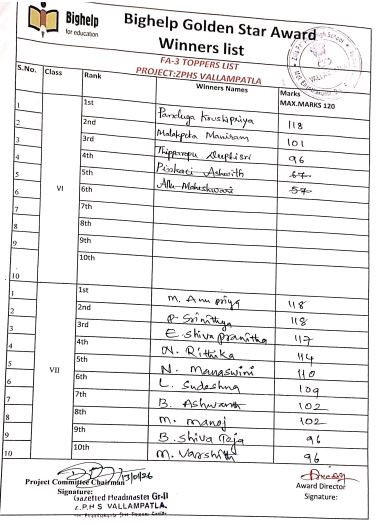 Bighelp
for education
Bighelp Golden Star Award
Winners list
FA-3 TOPPERS LIST
PROJECT:ZPHS VALLAMPATLA
S.No. Class Rank Winners Names Marks
MAX.MARKS 120
VI
1 1st Panduga Krushipriya 118
2 2nd Malakpeta Maniram 101
3 3rd Thipparapu Nuphisri 96
4 4th Pirakaci Ashwith 67
5 5th Allu Maheshwari 57
6 6th
7 7th
8 8th
9 9th
10 10th
VII
1 1st M. Anupriya 118
2 2nd P. Srinithya 118
3 3rd E. Shiva pranitha 117
4 4th N. Rithika 114
5 5th N. Manaswini 110
6 6th L. Sudeshna 109
7 7th B. Ashwanth 102
8 8th M. Manoj 102
9 9th B. Shiva Teja 96
10 10th M. Varshith 96
Project Committee Chairman
Signature:
Gazetted Headmaster Gr-II
Z.P.H S VALLAMPATLA.
Award Director
Signature: